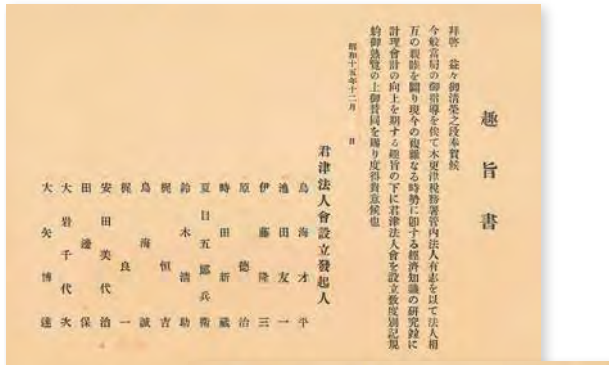 趣旨書
拝啓 益々御清榮之段奉賀候
今般當局の御指導を俟て木更津稅務署管内法人有志を以て法人相
互の親睦を圖り現今の複雜なる時勢に卽する經濟知識の研究並に
計理會計の向上を期する趣旨の下に君津法人會を設立致度別記規
約御熟覽の上御賛同を賜り度得貴意候也
昭和十五年十二月 日
君津法人會設立發起人
鳥海才平
池田友一
伊藤隆三
原德治
時田新藏
夏目五郎兵衞
鈴木淸助
梶恒吉
鳥海誠
梶良一
安田美代治
田邊保
大岩千代次
大矢博達